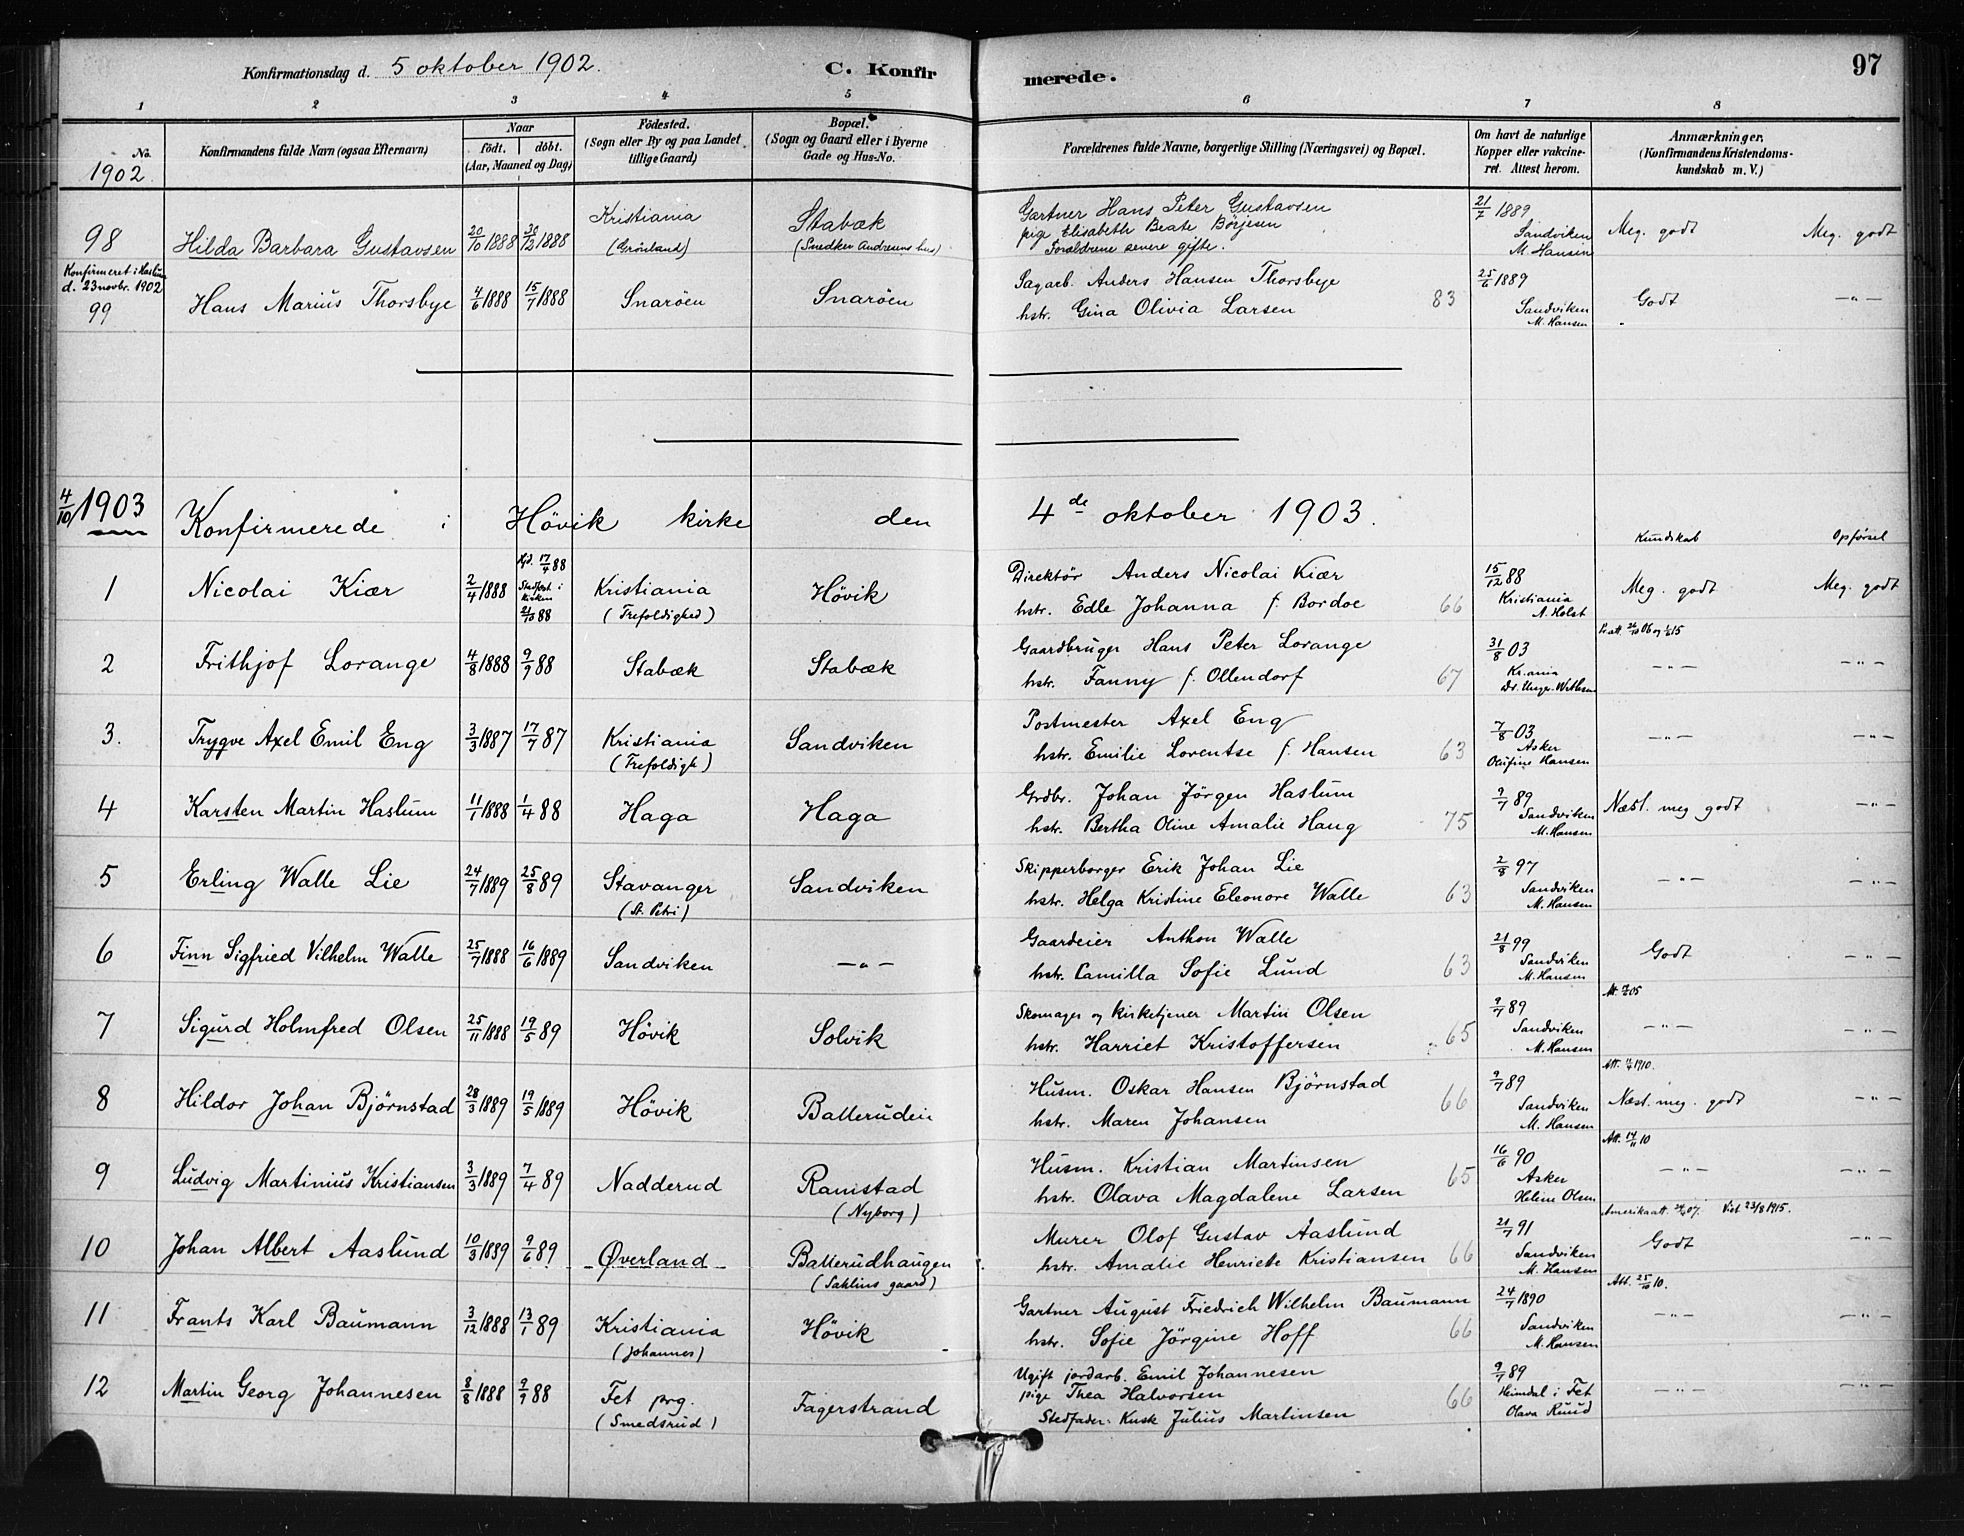 Konfirmationsdag d. 5 oktober 1902. C. Konfir merede. 97
1 2 3 4 5 6 7 8
No. 1902. Konfirmandens fulde Navn (ogsaa Efternavn) Naar födt. döbt. (Aar, Maaned og Dag) Födested. (Sogn eller By og paa Landet tillige Gaard) Bopæl. (Sogn og Gaard eller i Byerne Gade og Hus-No. Forældrenes fulde Navne, borgerlige Stilling (Næringsvei) og Bopæl. Om havt de naturlige Kopper eller vakcineret. Attest herom. Anmærkninger. (Konfirmandens Kristendomskundskab m. V.)
98 Hilda Barbara Gustavsen 20/10 1888 30/12 1888 Kristiania (Grönland) Stabæk (Snedker Andresens hus) Gartner Hans Peter Gustavsen
pige Elisabeth Beate Börjesen
Forældrene senere gifte. 21/7 1889 Sandviken M. Hansen Meg. godt Meg. godt
Konfirmeret i Haslum d. 23 novbr. 1902
99 Hans Marius Thorsbye 4/6 1888 15/7 1888 Snaröen Snaröen Sagarb. Anders Hansen Thorsbye
hstr. Gina Olivia Larsen 83 25/6 1889 Sandviken M. Hansen Godt —"—
4/10 1903 Konfirmerede i Hövik kirke den 4de oktober 1903.
Kundskab Opförsel
1 Nicolai Kiær 2/4 1888 Hjd. 17/4 88 Stadfest i kirken 21/10 88 Kristiania (Trefoldighed) Hövik Direktör Anders Nicolai Kiær
hstr. Edle Johanna f. Bordoe 66 15/12 88 Kristiania A. Holst Meg. godt Meg. godt
2 Frithjof Lorange 4/8 1888 9/9 88 Stabæk Stabæk Gaardbruger Hans Peter Lorange
hstr. Fanny f. Ollendorf 67 31/8 03 Kr.ania —"— —"—
3. Trygve Axel Emil Eng 3/3 1887 17/7 87 Kristiania (Trefoldigh) Sandviken Postmester Axel Eng
hstr. Emilie Lorentse f. Hansen 63 7/8 03 Asker Olufine Hansen —"— —"—
4 Karsten Martin Haslum 11/1 1888 1/4 88 Haga Haga Grdbr. Johan Jörgen Haslum
hstr. Bertha Oline Amalie Haug 75 9/7 89 Sandviken M. Hansen Næst. meg godt —"—
5 Erling Walle Lie 24/7 1889 25/8 89 Stavanger (St. Petri) Sandviken Skipperborger Erik Johan Lie
hstr. Helga Kristine Eleonore Walle 63 2/8 97 Sandviken M. Hansen —"— —"—
6 Finn Sigfried Vilhelm Walle 25/7 1888 16/6 1889 Sandviken —"— Gaardeier Anthon Walle
hstr. Camilla Sofie Lund 63 21/8 99 Sandviken M. Hansen Godt —"—
7 Sigurd Holmfred Olsen 25/11 1888 19/5 89 Hövik Solvik Skomager og kirketjener Martin Olsen
hstr. Harriet Kristoffersen 65 9/7 89 Sandviken M. Hansen —"— —"—
8 Hildor Johan Björnstad 28/3 1889 19/5 1889 Hövik Ballerudeie Husm. Oskar Hansen Björnstad
hstr. Maren Johansen 66 9/7 89 Sandviken M. Hansen Næst. meg. godt —"—
9 Ludvig Martinius Kristiansen 3/3 1889 7/4 89 Nadderud Ramstad (Nyborg) Husm. Kristian Martinsen
hstr. Olava Magdalene Larsen 65 16/6 90 Asker Helene Olsen Att. 14/11 10 —"— —"—
10 Johan Albert Aaslund 10/3 1889 9/6 89 Øverland Ballerudhaugen (Sahlins gaard) Murer Olof Gustav Aaslund
hstr. Amalie Henriette Kristiansen 66 21/7 91 Sandviken M. Hansen Godt —"—
11 Frants Karl Baumann 3/12 1888 13/1 89 Kristiania (Johannes) Hövik Gartner August Friedrich Wilhelm Baumann
hstr. Sofie Jörgine Hoff 66 24/7 1890 Sandviken M. Hansen Att. 25/10 10. —"— —"—
12 Martin Georg Johannesen 8/8 1888 9/9 88 Fet prg. (Smedsrud) Fagerstrand Ugift jordarb. Emil Johannesen
pige Thea Halvorsen
Stedfader: Kusk Julius Martinsen 66 9/7 89 Heimdal i Fet Olava Ruud —"— —"—